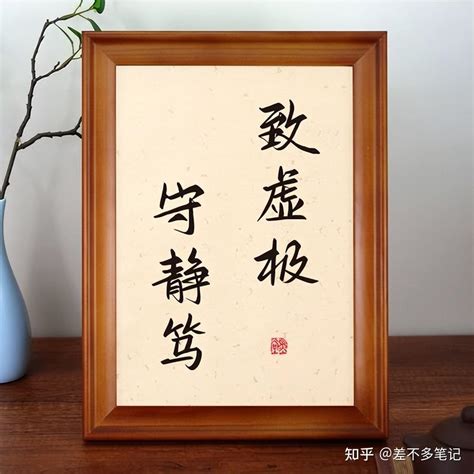 致虚极
守静笃
知乎 @差不多笔记